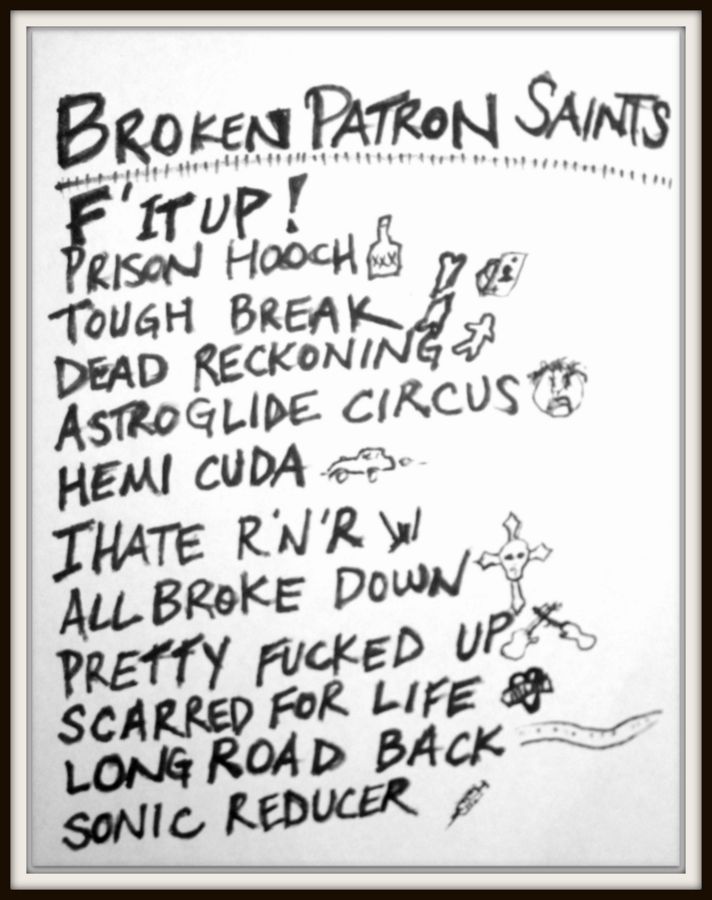 BROKEN PATRON SAINTS
F'IT UP!
PRISON HOOCH XXX
TOUGH BREAK
DEAD RECKONING
ASTROGLIDE CIRCUS
HEMI CUDA
I HATE R'N'R
ALL BROKE DOWN
PRETTY FUCKED UP
SCARRED FOR LIFE
LONG ROAD BACK
SONIC REDUCER